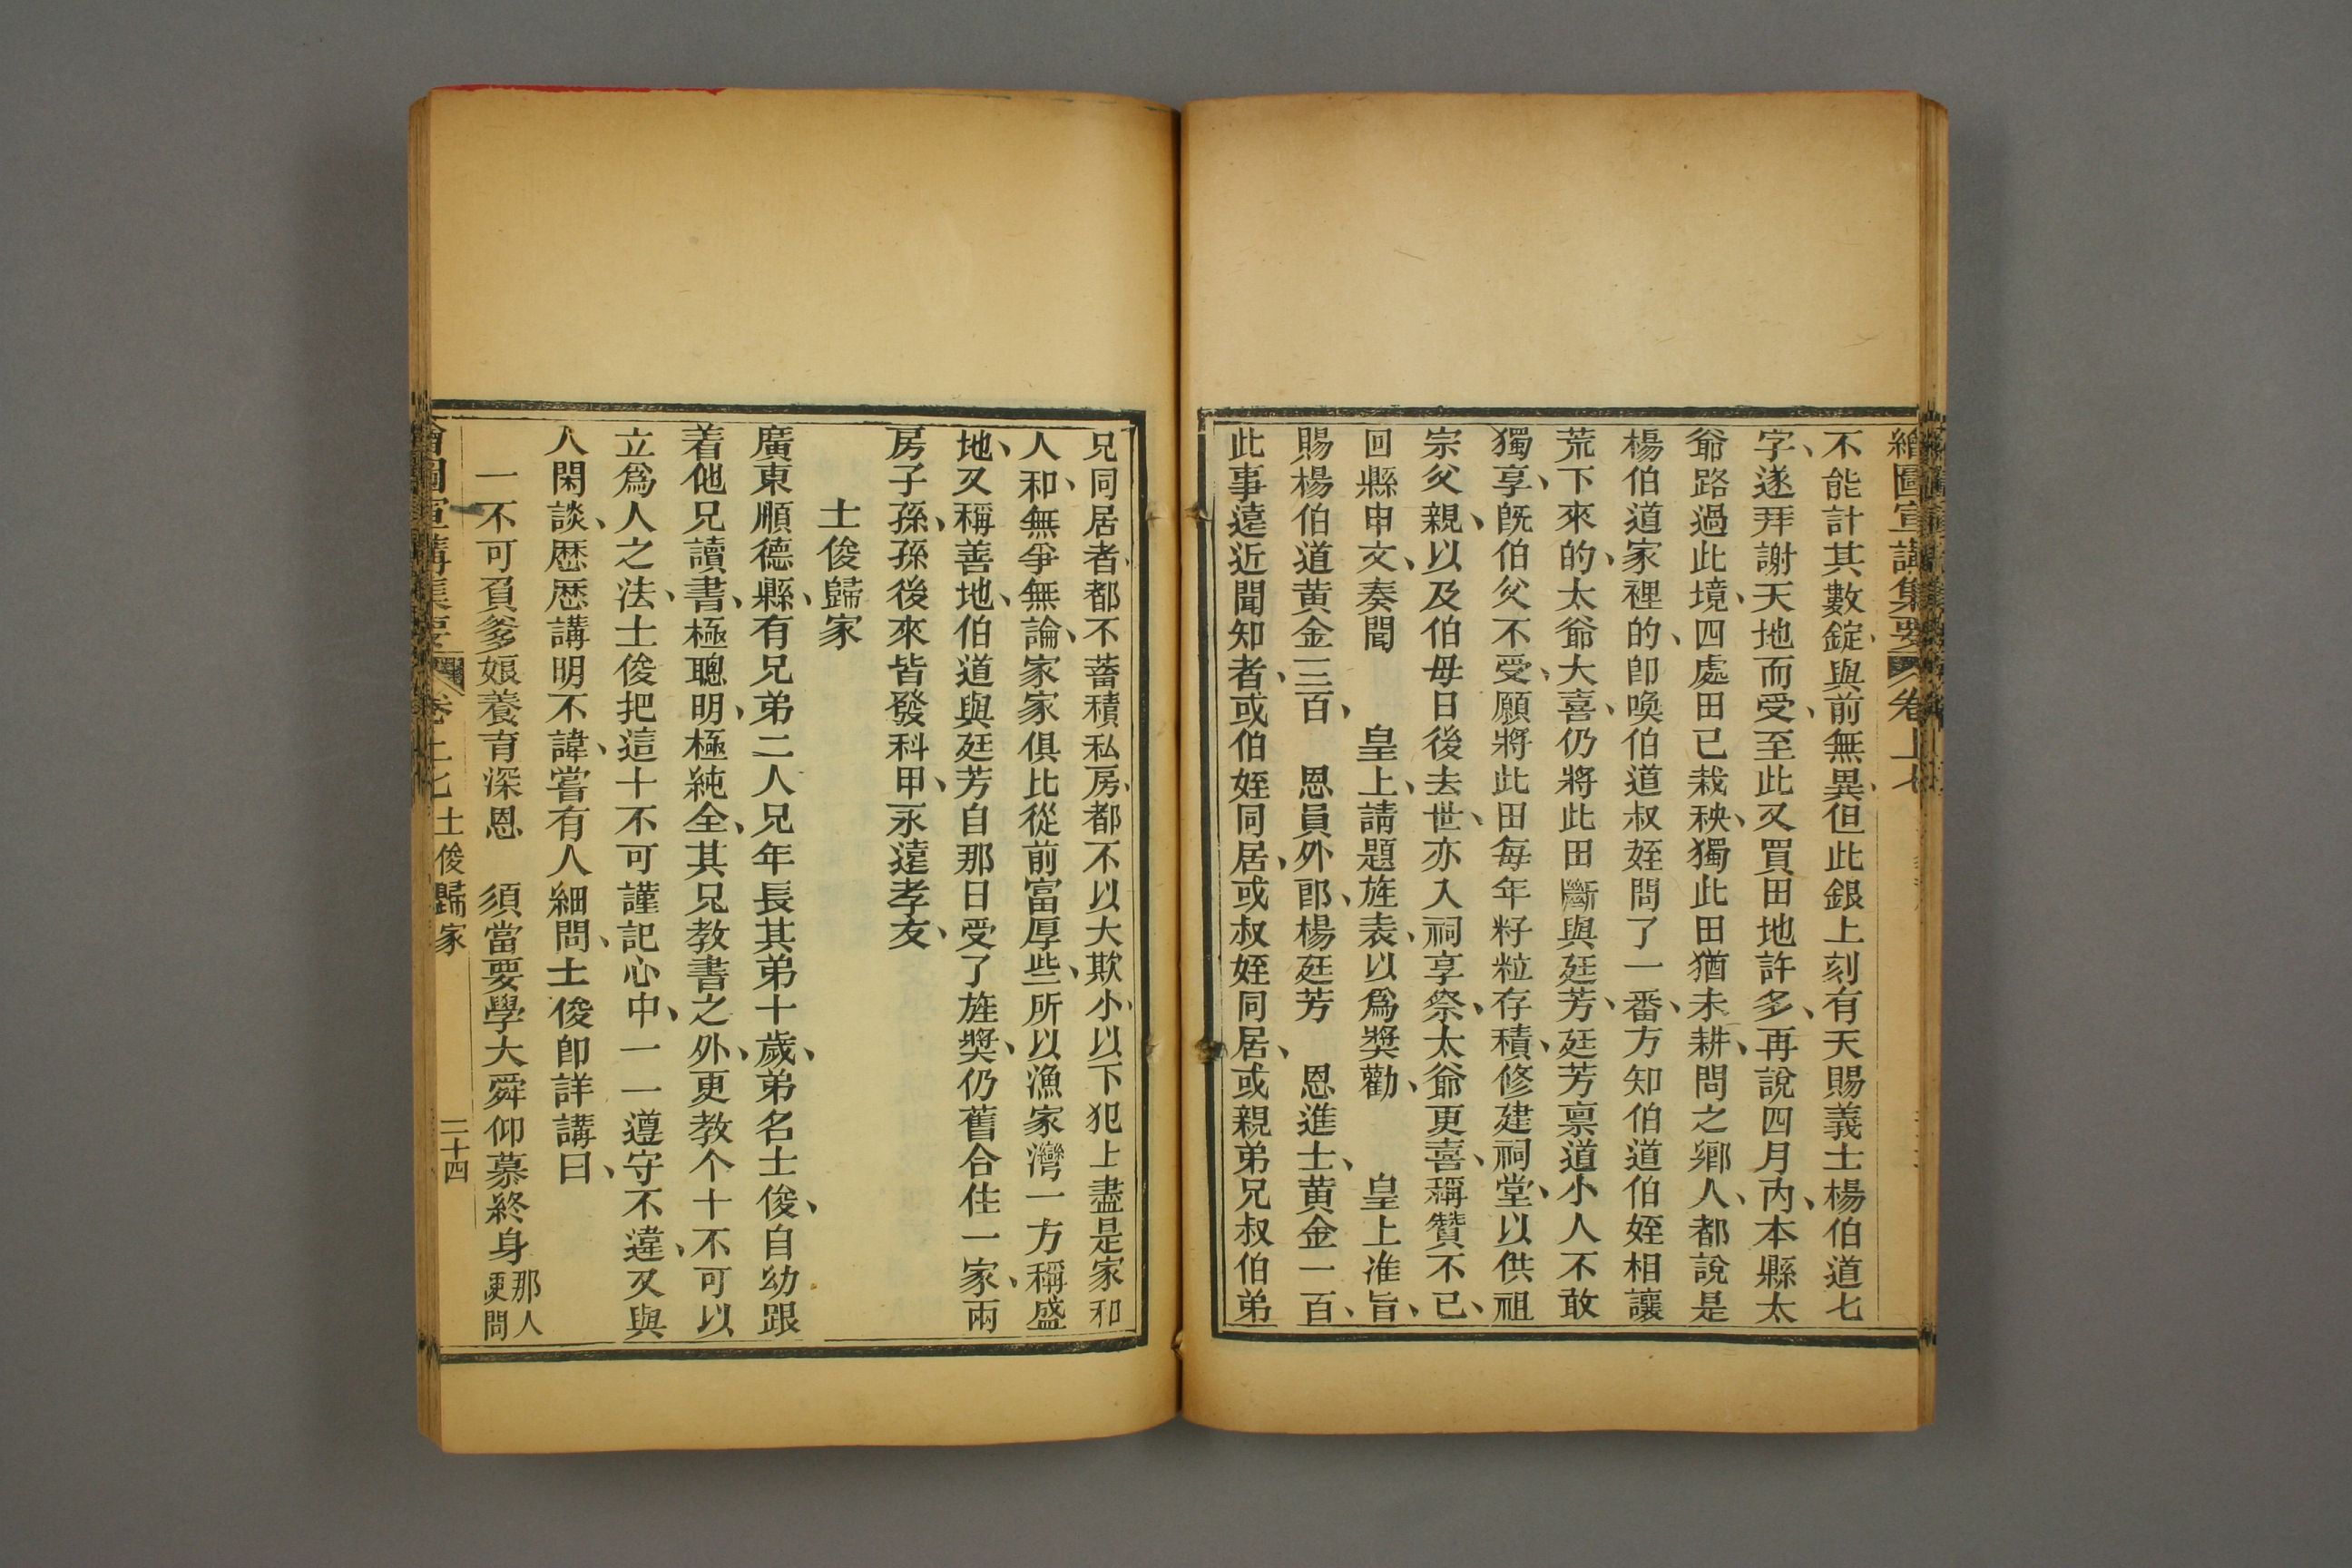 繪圖宣講集要 卷上七
不能計其數錠與前無異、但此銀上刻有天賜義士楊伯道七
字、遂拜謝天地而受、至此又買田地許多、再說四月內、本縣太
爺路過此境、四處田已栽秧、獨此田猶未耕、問之鄉人、都說是
楊伯道家裡的、卽喚伯道叔姪問了一番、方知伯道伯姪相讓
荒下來的、太爺大喜、仍將此田斷與廷芳、廷芳禀道小人不敢
獨享、旣伯父不受、願將此田每年籽粒存積、修建祠堂、以供祖
宗父親、以及伯母日後去世、亦入祠享祭、太爺更喜、稱贊不已、
回縣申文、奏聞 皇上、請題旌表、以爲奬勸、 皇上准旨、
賜楊伯道黄金三百、 恩員外郎、楊廷芳 恩進士、黄金一百、
此事遠近聞知者、或伯姪同居、或叔姪同居、或親弟兄叔伯弟
兄同居者、都不蓄積私房、都不以大欺小、以下犯上、盡是家和
人和、無爭無論、家家俱比從前富厚些、所以漁家灣一方稱盛
地、又稱善地、伯道與廷芳自那日受了旌奬、仍舊合住一家、兩
房子孫、孫後來皆發科甲、永遠孝友、
士俊歸家
廣東順德縣、有兄弟二人兄年長其弟十歲、弟名士俊、自幼跟
着他兄讀書、極聰明、極純全、其兄教書之外、更教个十不可以
立爲人之法、士俊把這十不可謹記心中、一一遵守不違、又與
人閑談、歷歷講明不諱、嘗有人細問、士俊卽詳講曰、
一不可負爹娘養育深恩 須當要學大舜仰慕終身 那人
更問
繪圖宣講集要 卷上七 士俊歸家 二十四